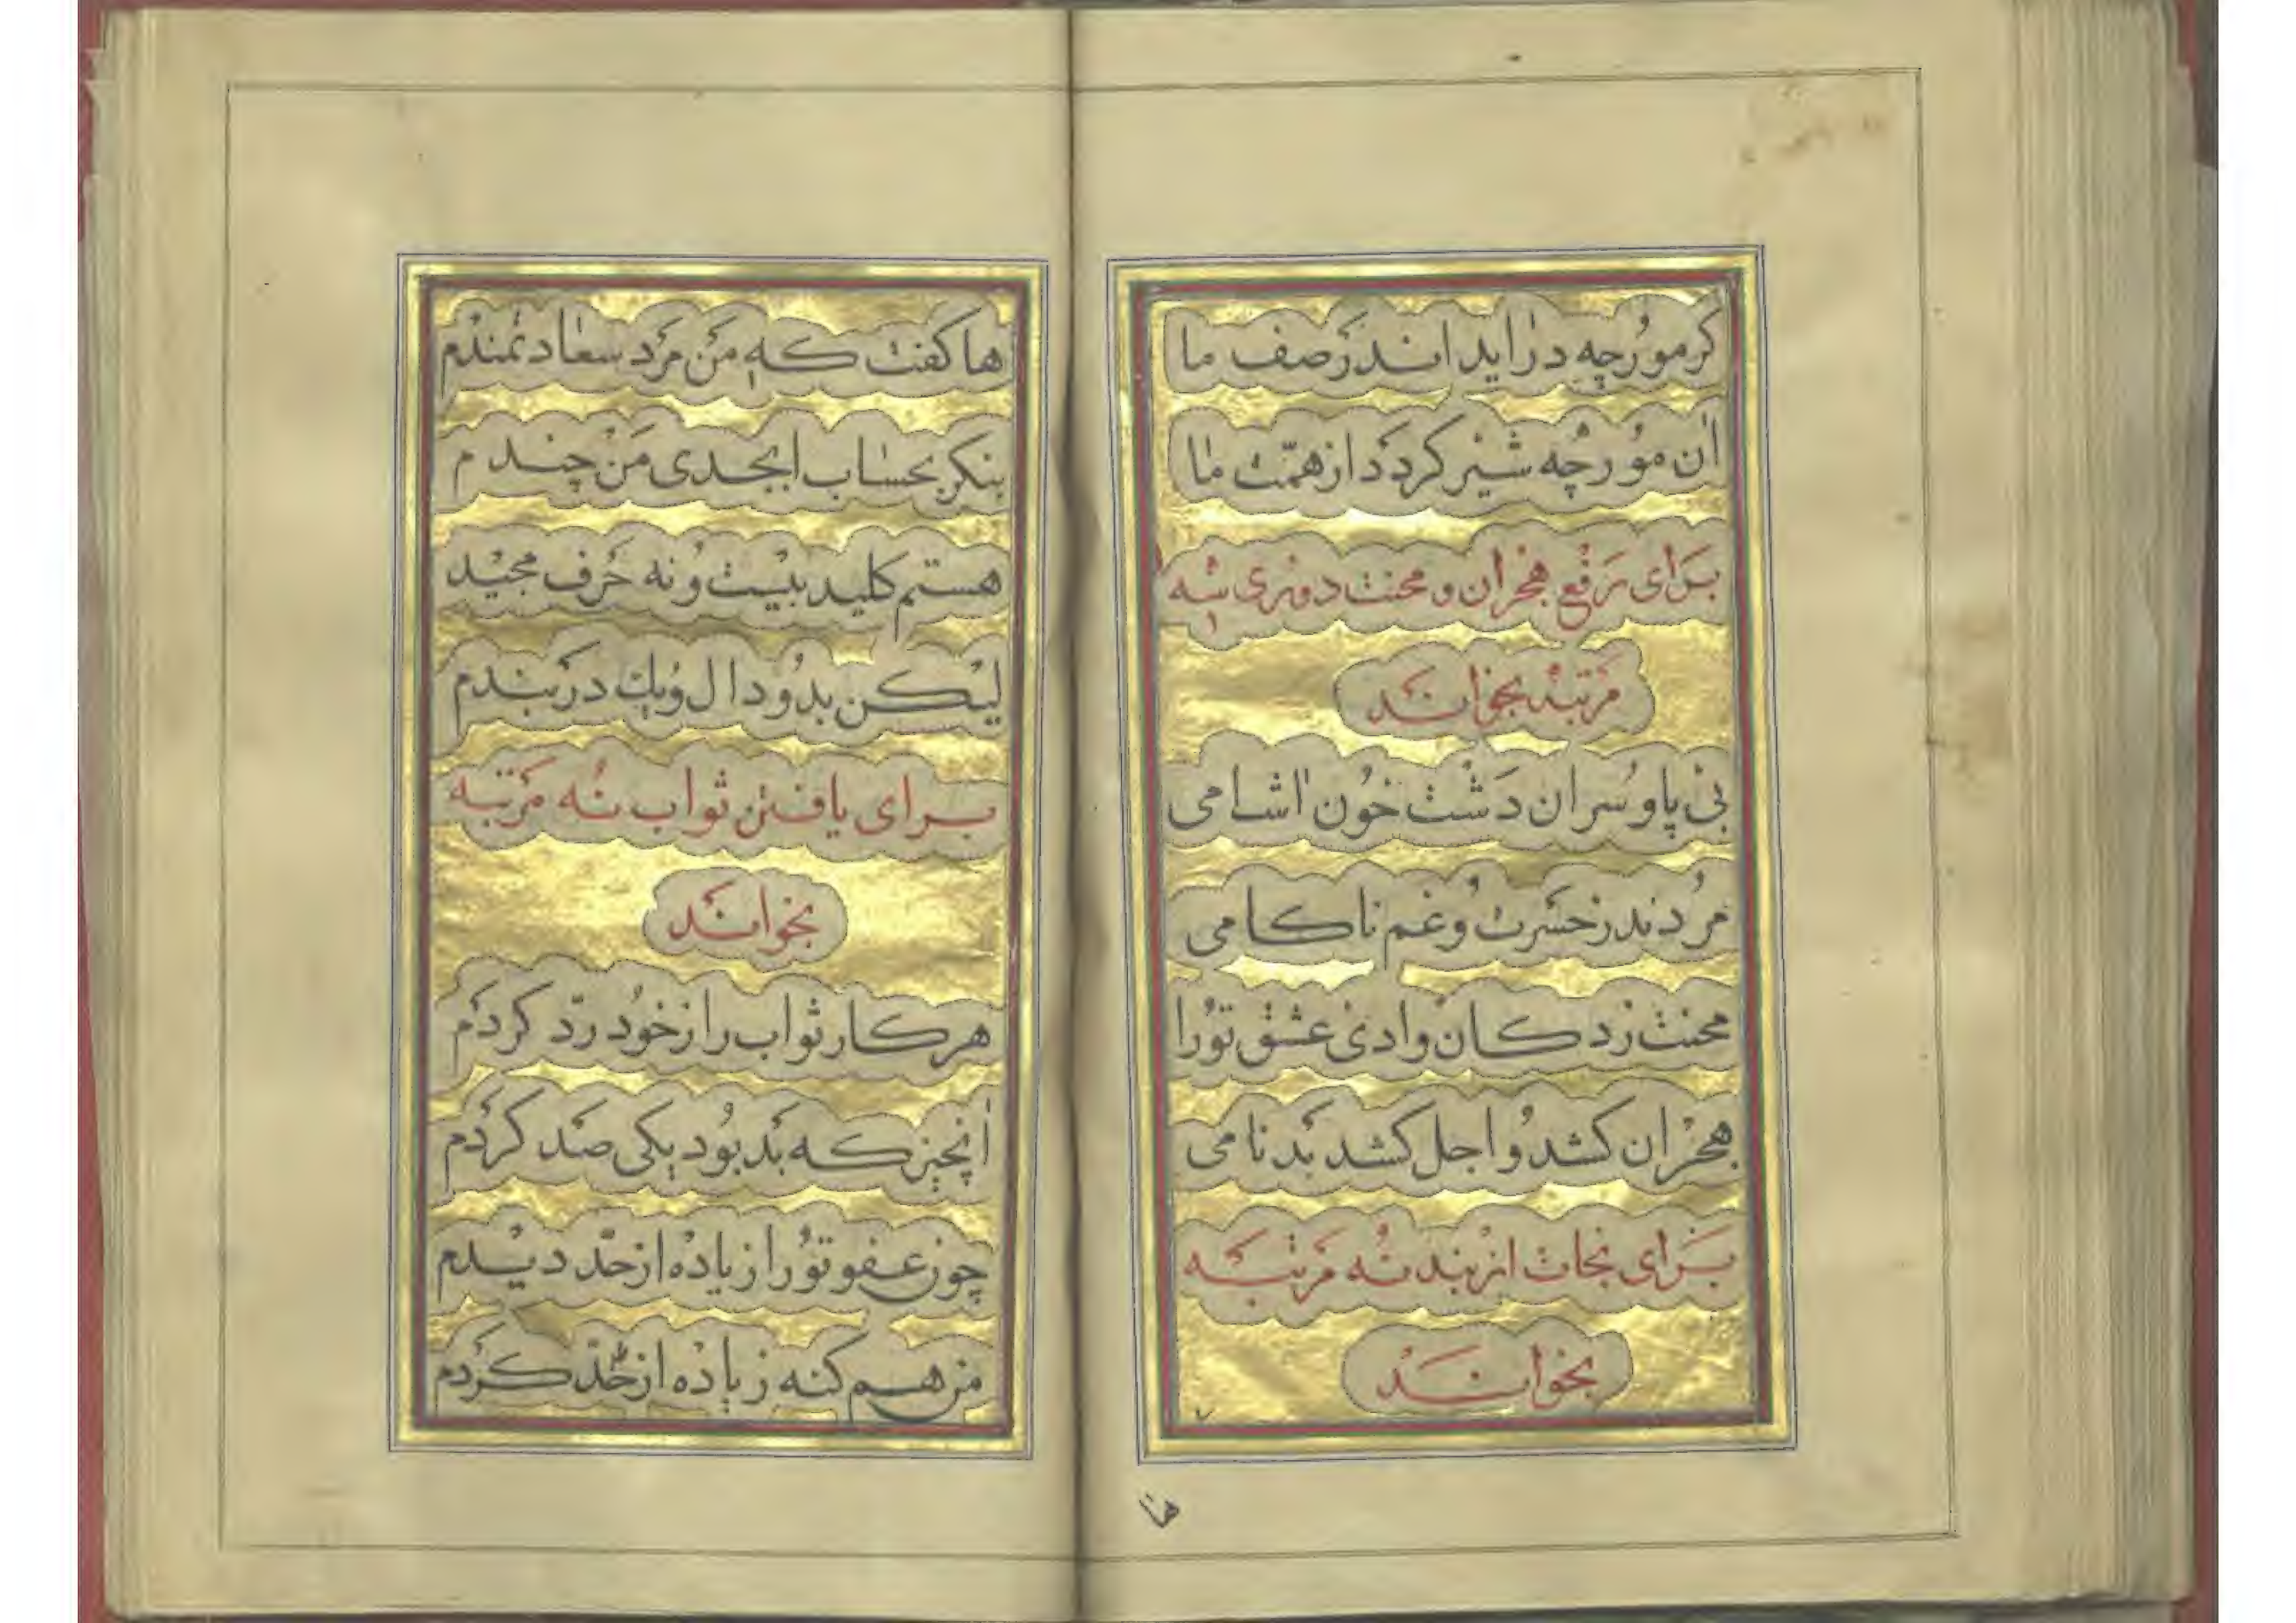 کر مورچه در اید اندر صف ما
ان مورچه شیر کردد از همت ما
برای رفع هجران و محنت دوری سه
مرتبه بخواند
بی پا و سران دشت خون اشامی
مردند ز حسرت و غم ناکامی
محنت زدکان وادی عشق تورا
هجران کشد و اجل کشد بدنامی
برای نجات از بند نه مرتبه
بخواند
ها
ها کفت که من مرد سعادتمندم
بنکر بحساب ابجدی من چندم
هستم کلید بیست و نه حرف مجید
لیکن بدو دال و یک در بندم
برای یافتن ثواب نه مرتبه
بخواند
هر کار ثواب را ز خود رد کردم
انچیز که بد بود یکی صد کردم
چون عفو تورا زیاده از حد دیدم
من هم کنه زیاده از حد کردم